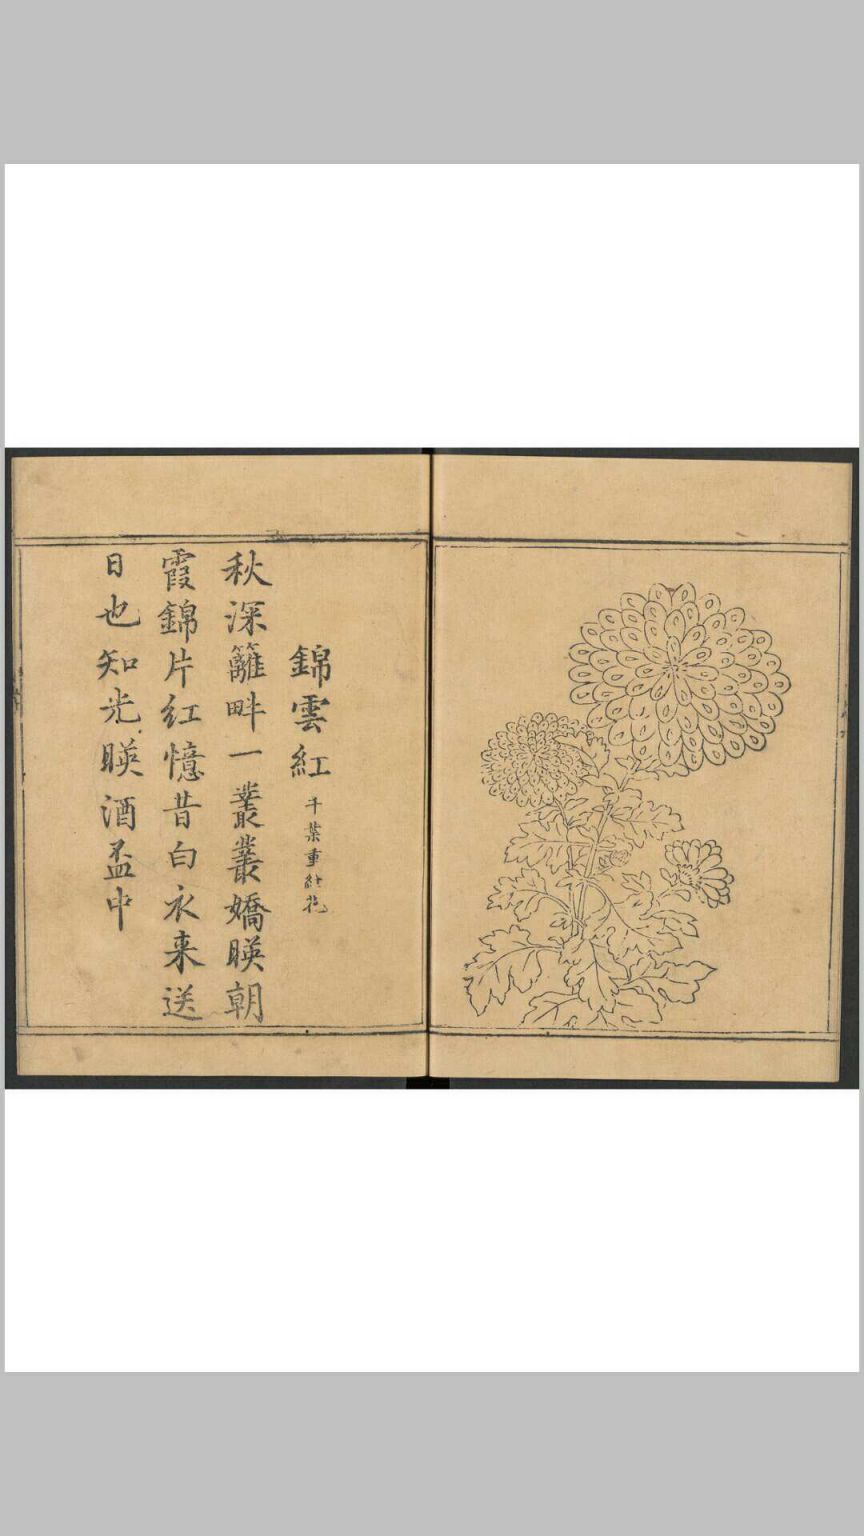 錦雲紅 千葉重紅花
秋深籬畔一叢叢嬌暎朝
霞錦片紅憶昔白衣来送
日也知光暎酒盃中